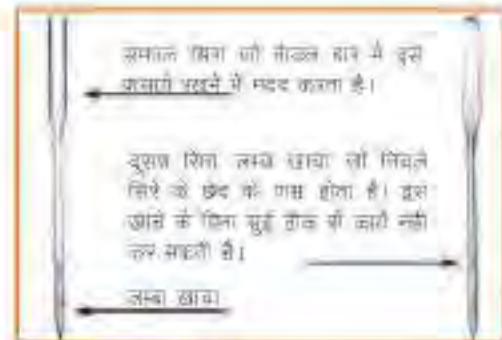 समतल सिरा जो नीडल बार में इसे
फंसाये रखने में मदद करता है।
दूसरा सिरा लम्बा खांचा जो निचले
सिरे के छेद के पास होता है। इस
खांचे के बिना सुई ठीक से कार्य नहीं
कर सकती है।
लम्बा खांचा